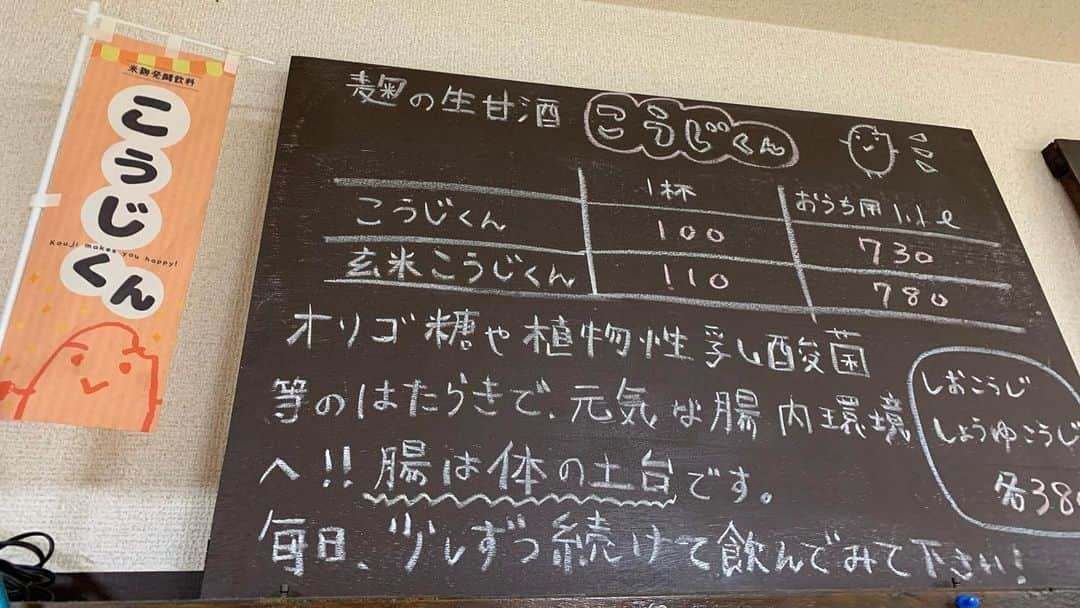 米麹発酵飲料
こうじくん
Kouji makes you happy!
麹の生甘酒 こうじくん
1杯 おうち用 1.1ℓ
こうじくん 100 730
玄米こうじくん 110 780
オリゴ糖や植物性乳酸菌
等のはたらきで、元気な腸内環境
へ!! 腸は体の土台です。
毎日、少しずつ続けて飲んでみて下さい!
しおこうじ
しょうゆこうじ
各